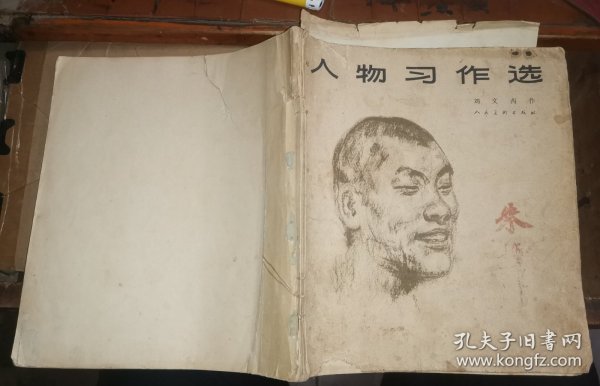 人物习作选
刘文西作
人民美术出版社
朱
孔夫子旧书网
www.kongfz.com